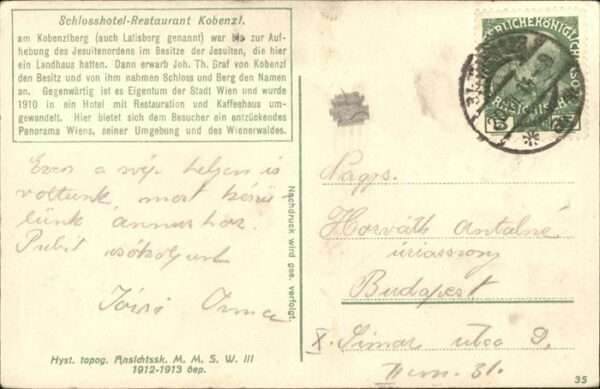 Schlosshotel-Restaurant Kobenzl.
am Kobenzlberg (auch Latisberg genannt) war bis zur Auf-
hebung des Jesuitenordens im Besitze der Jesuiten, die hier
ein Landhaus hatten. Dann erwarb Joh. Th. Graf von Kobenzl
den Besitz und von ihm nahmen Schloss und Berg den Namen
an. Gegenwärtig ist es Eigentum der Stadt Wien und wurde
1910 in ein Hotel mit Restauration und Kaffeehaus um-
gewandelt. Hier bietet sich dem Besucher ein entzückendes
Panorama Wiens, seiner Umgebung und des Wienerwaldes.
Ezen a szép helyen is
voltunk, most készü-
lünk
csókoljuk
Nachdruck wird ges. verfolgt.
Hyst. topog. Ansichtssk. M. M. S. W. III
1912-1913 Sep.
Nagys.
Horváth Antalné
úriasszony
Budapest
X. Simor utca 9.
II em. 31.
35